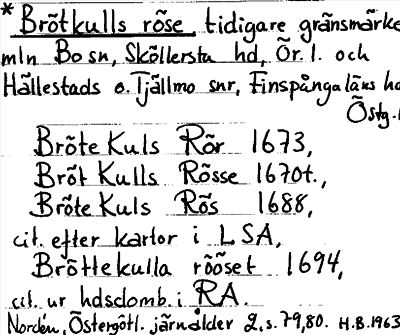 * Brötkulls röse tidigare gränsmärke
mln Bo sn, Sköllersta hd, Ör. l. och
Hällestads o. Tjällmo snr, Finspånga läns hd
Östg. l
Bröte Kuls Rör 1673,
Bröt Kulls Rösse 1670t.,
Bröte Kuls Rös 1688,
cit. efter kartor i LSA,
Bröttekulla rööset 1694,
cit. ur hdsdomb. i RA.
Nordén, Östergötl. järnålder 2, s. 79, 80. H.B. 1963